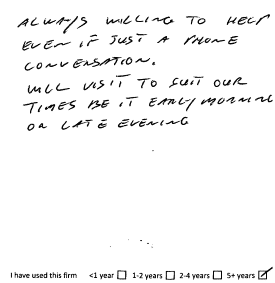 ALWAYS WILLING TO HELP
EVEN IF JUST A PHONE
CONVENSATION.
WILL VISIT TO SUIT OUR
TIMES BE IT EARLY MORNING
OR LATE EVENING
I have used this firm <1 year ☐ 1-2 years ☐ 2-4 years ☐ 5+ years ☑